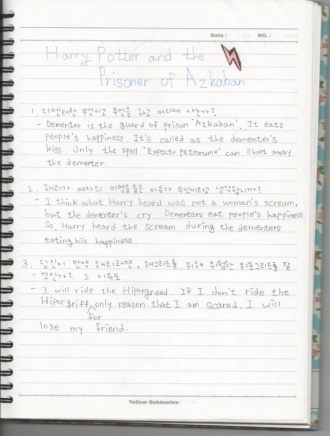 Date /
NO. /
Harry Potter and the
Prisoner of Azkaban
1. 디멘터란 무엇이고 무엇을 하고
- Dementer is the guard of prison 'Azkaban'. It eats
people's happiness. It's called as the dementer's
kiss. Only the spell 'Expecto patronuno' can shoot away
the dementer.
2. 해리가 들은 비명소리
- I think what Harry heard was not a woman's scream,
but the dementer's cry. Dementers eat people's happiness.
So, Harry heard the scream during the dementers
eating his happiness.
3. 당신이 만약 해리라면,
그 이유도
- I will ride the Hipergreed. If I don't ride the
Hipergriff, only reason that I am scared. I will
for
lose my friend.
Yellow Submarine